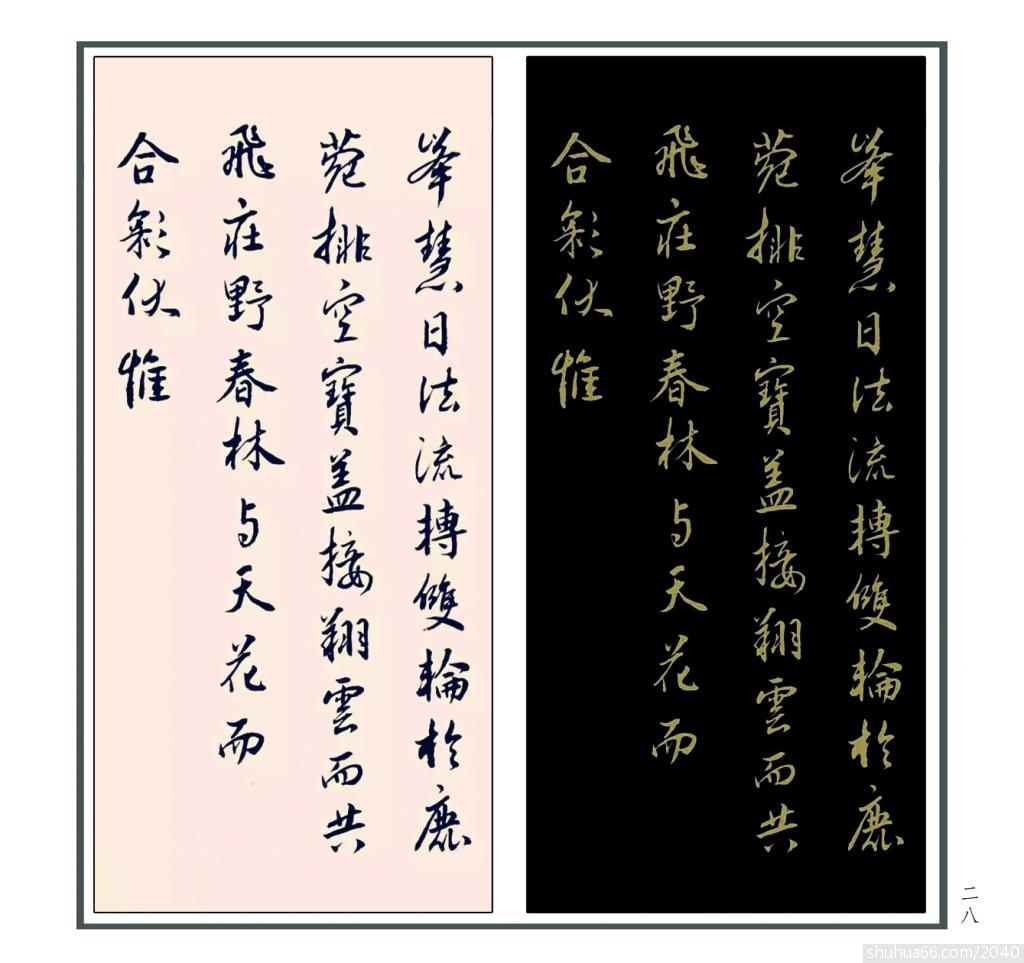 峯慧日法流轉雙輪於鹿
菀排空寶盖接翔雲而共
飛庄野春林与天花而
合彩伏惟
峯慧日法流轉雙輪於鹿
菀排空寶盖接翔雲而共
飛庄野春林与天花而
合彩伏惟
二八
shuhua66.com/2040